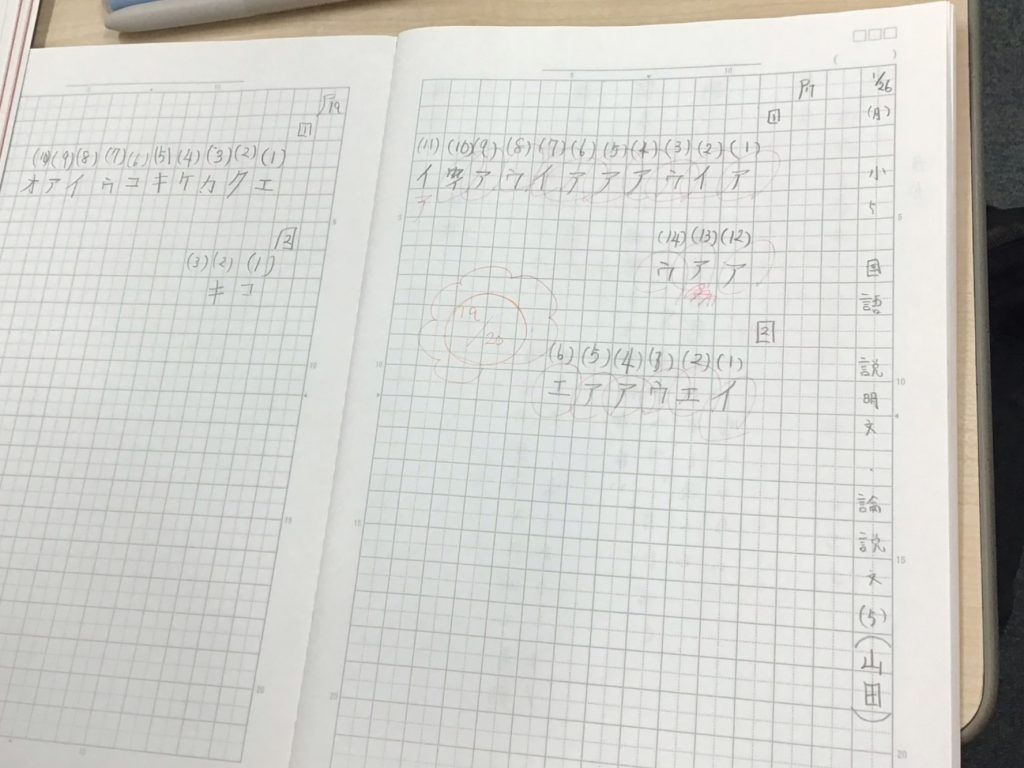 1/26(月) 小5 国語 説明文・論説文(5)(山田)
P7
1
(1)ア
(2)イ
(3)ウ
(4)ア
(5)ア
(6)ア
(7)イ
(8)ウ
(9)ア
(10)
(11)イ
(12)ア
(13)ア
(14)ウ
2
(1)イ
(2)エ
(3)ウ
(4)ア
(5)ア
(6)エ
19/20
P19
1
(1)エ
(2)ク
(3)カ
(4)ケ
(5)キ
(6)コ
(7)ウ
(8)イ
(9)ア
(10)オ
2
(1)コ
(2)キ
(3)